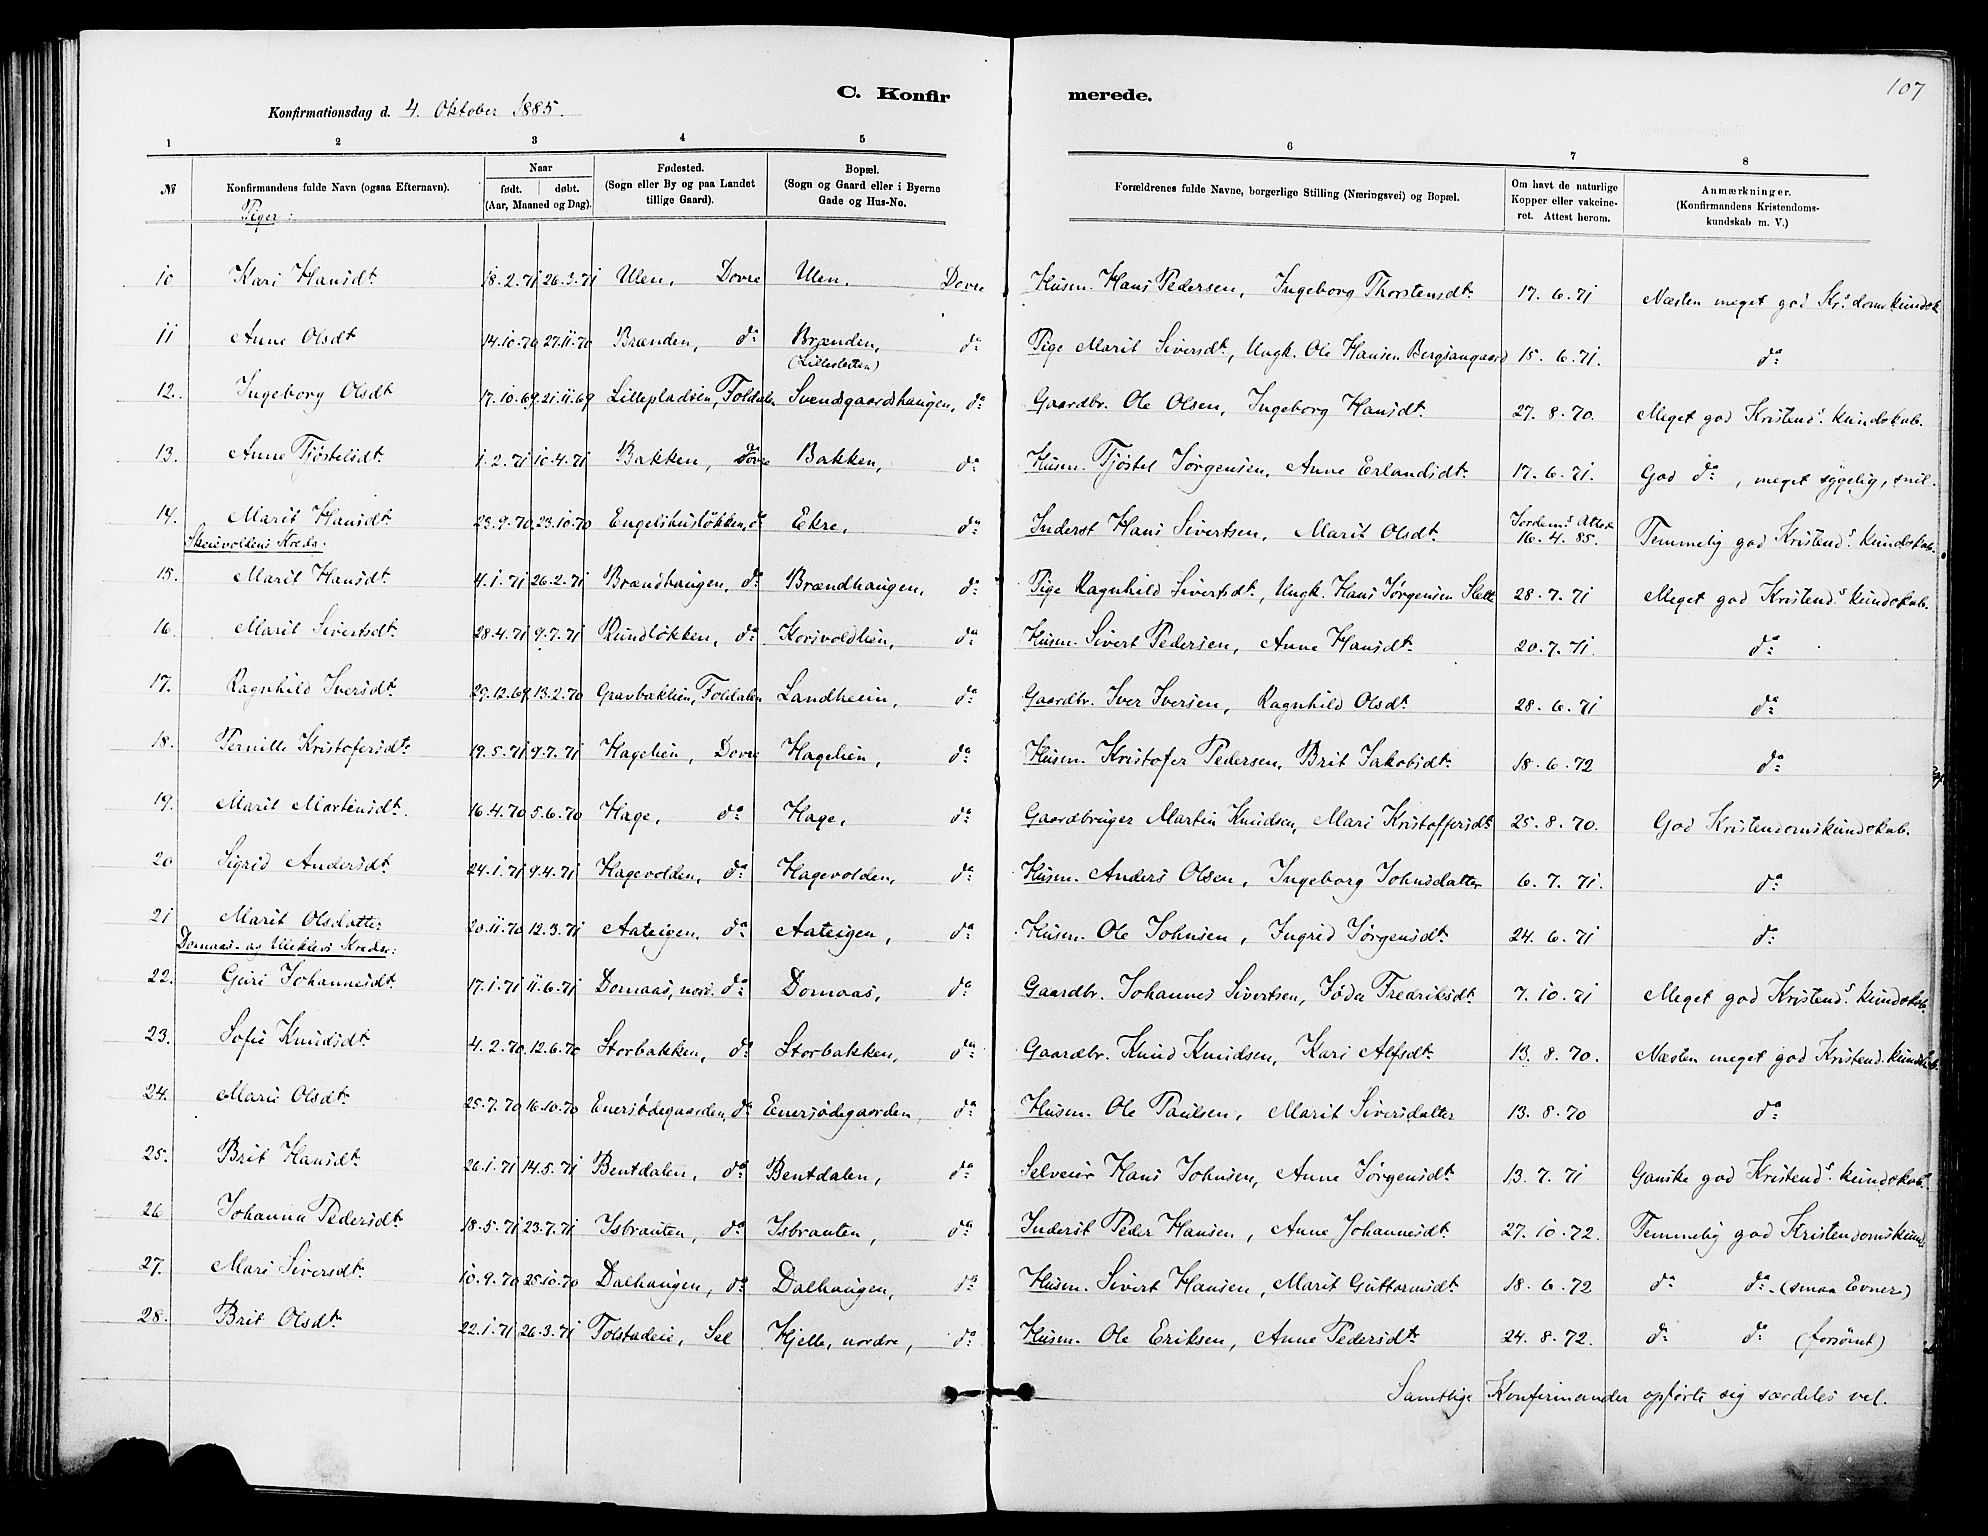 107
C. Konfirmerede.
Konfirmationsdag d. 4. Oktober 1885.
1 2 3 4 5 6 7 8
№ Konfirmandens fulde Navn (ogsaa Efternavn). Naar født. døbt. (Aar, Maaned og Dag). Fødested. (Sogn eller By og paa Landet tillige Gaard). Bopæl. (Sogn og Gaard eller i Byerne Gade og Hus-No. Forældrenes fulde Navne, borgerlige Stilling (Næringsvei) og Bopæl. Om havt de naturlige Kopper eller vakcineret. Attest herom. Anmærkninger. (Konfirmandens Kristendomskundskab m. V.)
Piger:
10 Kari Hansdt. 18.2.71 26.3.71 Ulen, Dovre Ulen, Dovre Husm. Hans Pedersen, Ingeborg Thorstensdt. 17.6.71 Næsten meget god Krsdomskundsk.
11 Anne Olsdt 14.10.70 27.11.70 Brænden, do Brænden, (Lillesletten) do Pige Marit Siversdt, Ungk. Ole Hansen Bergsangaard 15.6.71. do
12. Ingeborg Olsdt 17.10.69 21.11.69 Lillepladsen, Foldalen Svendsgaardshaugen, do Gaardbr. Ole Olsen, Ingeborg Hansdt. 27.8.70. Meget god Kristends. kundskab.
13. Anne Tjøstelsdt. 1.2.71 10.4.71 Bakken, Dovre Bakken, do Husm. Tjøstel Jørgensen, Anne Erlandsdt. 17.6.71. God do, meget sygelig, snil.
14. Marit Hansdt. 23.9.70 23.10.70 Engelshusløkken, do Ekre, do Inderst Hans Sivertsen, Marit Olsdt. Jordems Attest 16.4.85. Temmelig god Kristends. kundskab.
Skeievoldens Kreds.
15. Marit Hansdt. 4.1.71 26.2.71 Brændhaugen, do Brændhaugen, do Pige Ragnhild Sivertsdt., Ungk. Hans Jørgensen Slette 28.7.71 Meget god Kristends. kundskab.
16. Marit Sivertsdt. 28.4.71 9.7.71 Rundløkken, do Korsvoldhen, do Husm. Sivert Pedersen, Anne Hansdt. 20.7.71. do
17. Ragnhild Iversdt. 29.12.69 13.2.70 Gravbakken, Foldalen Landheim, do Gaardbr. Iver Iversen, Ragnhild Olsdt. 28.6.71 do
18. Pernille Kristofersdt. 19.5.71 9.7.71 Hagelien, Dovre Hagelien, do Husm. Kristofer Pedersen, Brit Jakobsdt. 18.6.72 do
19. Marit Martinsdt. 16.4.70 5.6.70 Hage, do Hage, do Gaardbruger Martin Knudsen, Mari Kristoffersdt. 25.8.70. God Kristendomskundskab.
20 Sigrid Andersdt. 24.1.71 9.4.71 Hagevolden, do Hagevolden, do Husm. Anders Olsen, Ingeborg Johnsdatter 6.7.71. do
21 Marit Olsdatter 20.11.70 12.3.71 Aateigen, do Aateigen, do Husm. Ole Johnsen, Ingrid Jørgensdt. 24.6.71 do
Domaas- og Ulekleivs Kredse:
22. Guri Johannesdt. 17.1.71 11.6.71 Domaas, nørd. do Domaas, do Gaardbr. Johannes Sivertsen, Jøda Fredriksdt. 7.10.71 Meget god Kristends. kundskab.
23. Sofie Knudsdt. 4.2.70 12.6.70 Storbakken, do Storbakken, do Gaardbr. Knud Knudsen, Kari Alfsdt. 13.8.70. Næsten meget god Kristend. kundskab.
24. Mari Olsdt. 25.7.70 16.10.70 Enersødegaarden, do Enersødegaarden, do Husm. Ole Paulsen, Marit Siversdatter 13.8.70 do
25. Brit Hansdt. 26.1.71 14.5.71 Bentdalen, do Bentdalen, do Selveier Hans Johnsen, Anne Jørgensdt. 13.7.71 Ganske god Kristends. kundskab.
26 Johanna Pedersdt. 18.5.71 23.7.71 Isbrauten, do Isbrauten, do Inderst Peder Hansen, Anne Johannesdt. 27.10.72. Temmelig god Kristendomskund
27. Mari Siversdt. 10.9.70 25.10.70 Dalhaugen, do Dalhaugen, do Husm. Sivert Hansen, Marit Guttormsdt. 18.6.72 do do. (smaa Evner)
28. Brit Olsdt. 22.1.71 26.3.71 Tolstadeie, Sel Kjelle, nordre, do Husm. Ole Eriksen, Anne Pedersdt. 24.8.72. do do (forsømt)
Samtlige Konfirmander opførte sig særdeles vel.